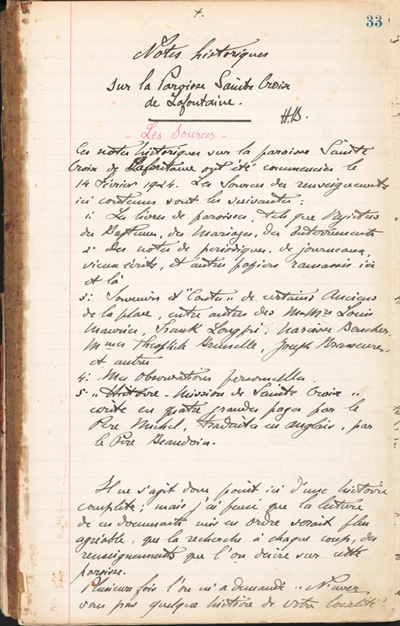 +.
33
Notes historiques
sur la Paroisse Sainte Croix
de Lafontaine.
H.B.
- Les Sources -
Ces notes historiques sur la paroisse Sainte
Croix de Lafontaine ont été commencées le
14 Février 1924. Les Sources des renseignements
ici contenus sont les suivantes :
1: Les livres de paroisses, tels que Registres
des Baptêmes, des Mariages, des Enterrements
2: Des notes de périodiques, de journaux,
vieux écrits, et autres papiers ramassés ici
et là
3: Souvenirs et "Contes" de certains Anciens
de la place, entre autres des MM Louis
Maurice, Frank Longpré, Narcisse Boucher,
Mmes Théophile Brunelle, Joseph Brasseur,
et autres
4: Mes observations personnelles.
5: "Histoire - Mission de Sainte Croix"
écrite en quatre grandes pages par le
Père Michel, traduites en anglais, par
le Père Beaudoin.
Il ne s'agit donc point ici d'une histoire
complète; mais j'ai pensé que la lecture
de ces documents mis en ordre serait plus
agréable, que la recherche à chaque coup, des
renseignements que l'on désire sur cette
paroisse.
Plusieurs fois l'on m'a demandé "N'avez
vous pas quelque histoire de votre localité"